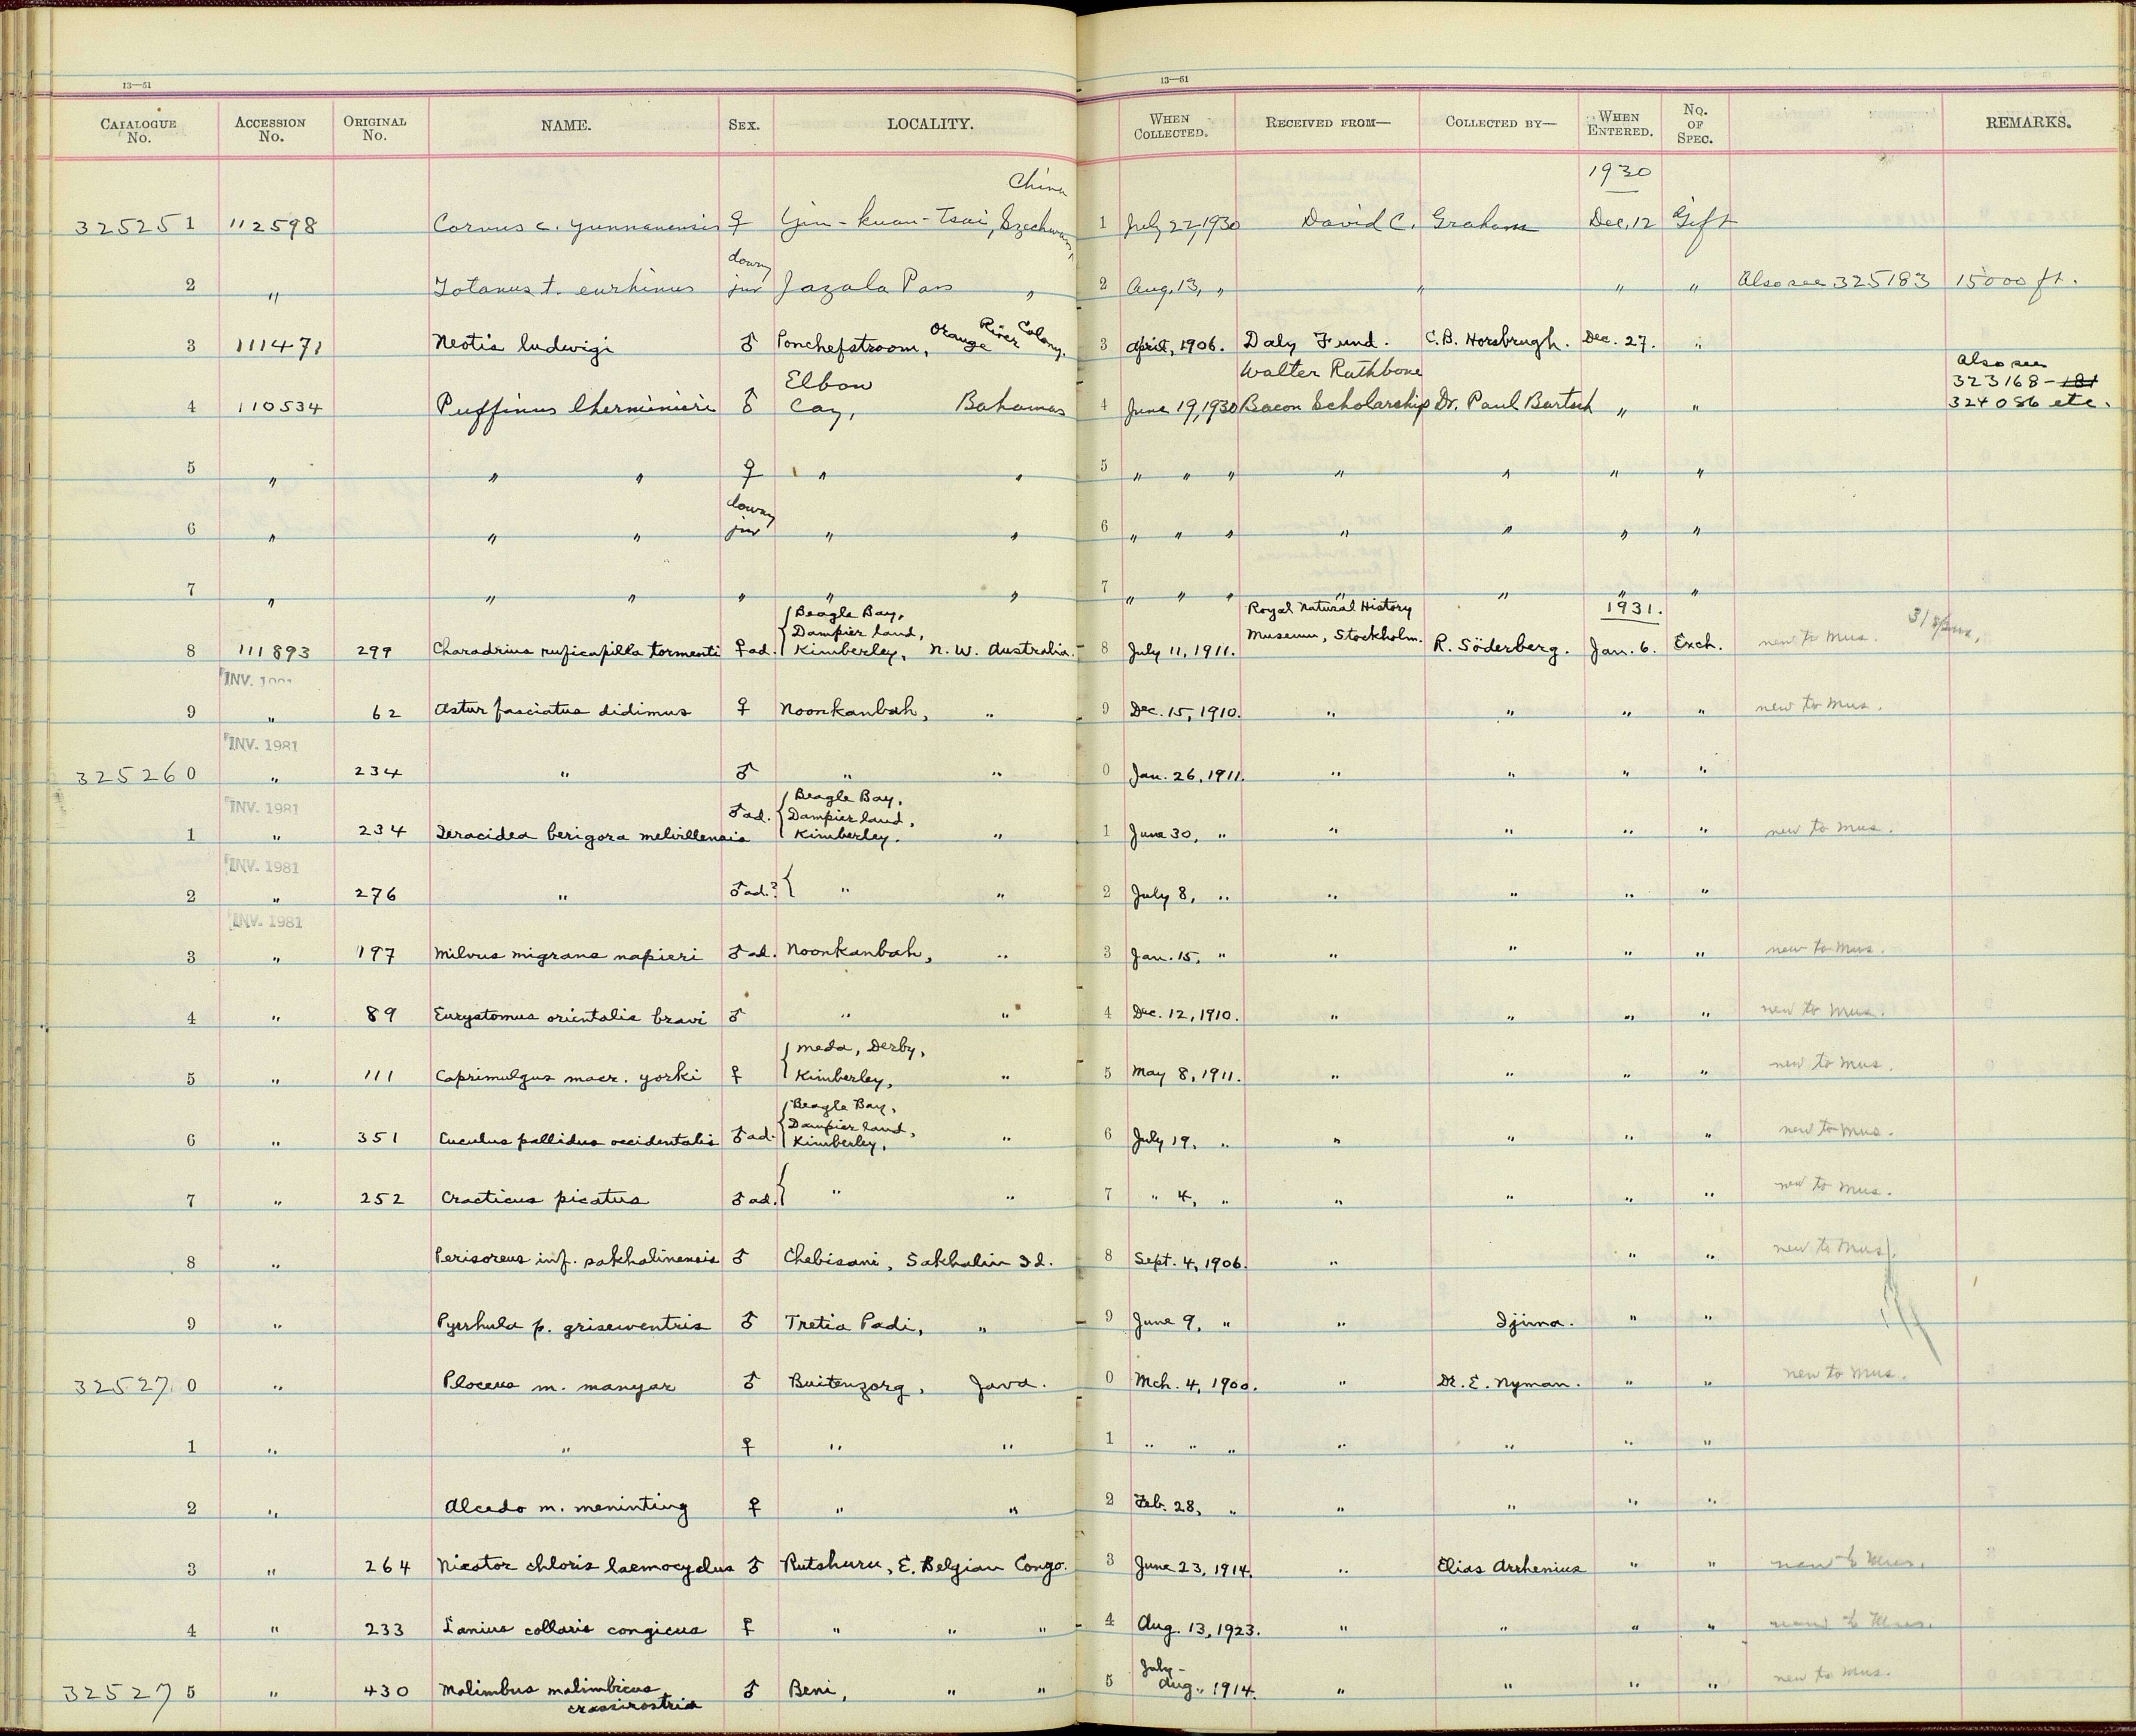 13—51
13—51
CATALOGUE No. ACCESSION No. ORIGINAL No. NAME. SEX. LOCALITY. WHEN COLLECTED. RECEIVED FROM— COLLECTED BY— WHEN ENTERED. NO. OF SPEC. REMARKS.
China 1930
325251 112598 Corvus c. yunnanensis ♀ Yin-kuan-Tsai, Szechwan, 1 July 22, 1930 David C. Graham Dec. 12 Gift
downy
2 " Totanus t. eurhinus juv Jazala Pass " 2 Aug. 13, " " " " Also see 325183 15000 ft.
3 111471 Neotis ludwigi ♂ Ponchefstroom, Orange River Colony. 3 April, 1906. Daly Fund. C.B. Horsbrugh. Dec. 27. "
Elbow Walter Rathbone Also see 323168-181
4 110534 Puffinus lherminieri ♂ Cay, Bahamas 4 June 19, 1930 Bacon Scholarship Dr. Paul Bartsch " " 324086 etc.
5 " " " ♀ " " 5 " " " " " " "
downy
6 " " " juv " " 6 " " " " " " "
7 " " " " " " 7 " " " " " " "
{Beagle Bay, Royal Natural History 1931.
Dampier land, Museum, Stockholm.
8 111893 299 Charadrius ruficapilla tormenti ♀ad. Kimberley, N.W. Australia. 8 July 11, 1911. R. Söderberg. Jan. 6. Exch. new to Mus.
INV.
9 " 62 Astur fasciatus didimus ♀ Noonkanbah, " 9 Dec. 15, 1910. " " " " new to Mus.
INV. 1981
325260 " 234 " ♂ " " 0 Jan. 26, 1911. " " " "
INV. 1981 {Beagle Bay,
Dampier land,
1 " 234 Ieracidea berigora melvillensis ♂ad. Kimberley. " 1 June 30, " " " " " new to Mus.
INV. 1981
2 " 276 " ♂ad.? { " " 2 July 8, " " " " "
INV. 1981
3 " 197 Milvus migrans napieri ♂ad. Noonkanbah, " 3 Jan. 15, " " " " " new to Mus.
4 " 89 Eurystomus orientalis bravi ♂ " " 4 Dec. 12, 1910. " " " " new to Mus.
{Meda, Derby,
5 " 111 Caprimulgus macr. yorki ♀ Kimberley, " 5 May 8, 1911. " " " " new to Mus.
{Beagle Bay,
Dampier land,
6 " 351 Cuculus pallidus occidentalis ♂ad. Kimberley, " 6 July 19, " " " " " new to Mus.
7 " 252 Cracticus picatus ♂ad. { " " 7 " 4, " " " " " new to Mus.
8 " Perisoreus inf. sakhalinensis ♂ Chebisani, Sakhalin Id. 8 Sept. 4, 1906. " " " new to Mus.
9 " Pyrrhula p. griseiventris ♂ Tretia Padi, " 9 June 9, " " Ijima. " "
325270 " Ploceus m. manyar ♂ Buitenzorg, Java. 0 Mch. 4, 1900. " Dr. E. Nyman. " " new to Mus.
1 " " ♀ " " 1 " " " " " " "
2 " Alcedo m. meninting ♀ " " 2 Feb. 28, " " " " "
3 " 264 Nicator chloris laemocyclus ♂ Rutshuru, E. Belgian Congo. 3 June 23, 1914. " Elias Arrhenius " " new to Mus.
4 " 233 Lanius collaris congicus ♀ " " " 4 Aug. 13, 1923. " " " " new to Mus.
July-
325275 " 430 Malimbus malimbicus ♂ Beni, " " 5 Aug., 1914. " " " " new to Mus.
crassirostris